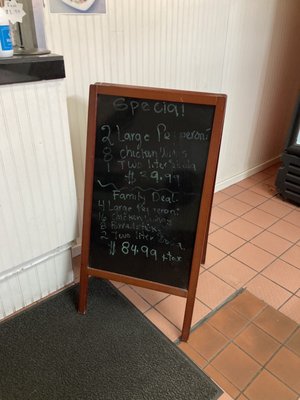 Special
2 Large Pepperoni
8 chicken
1 Two liter Soda
$39.99
Family Deal
4 Large Pepperoni
16 chicken wings
8 Breadsticks
2 Two liter Soda
$84.99 + tax